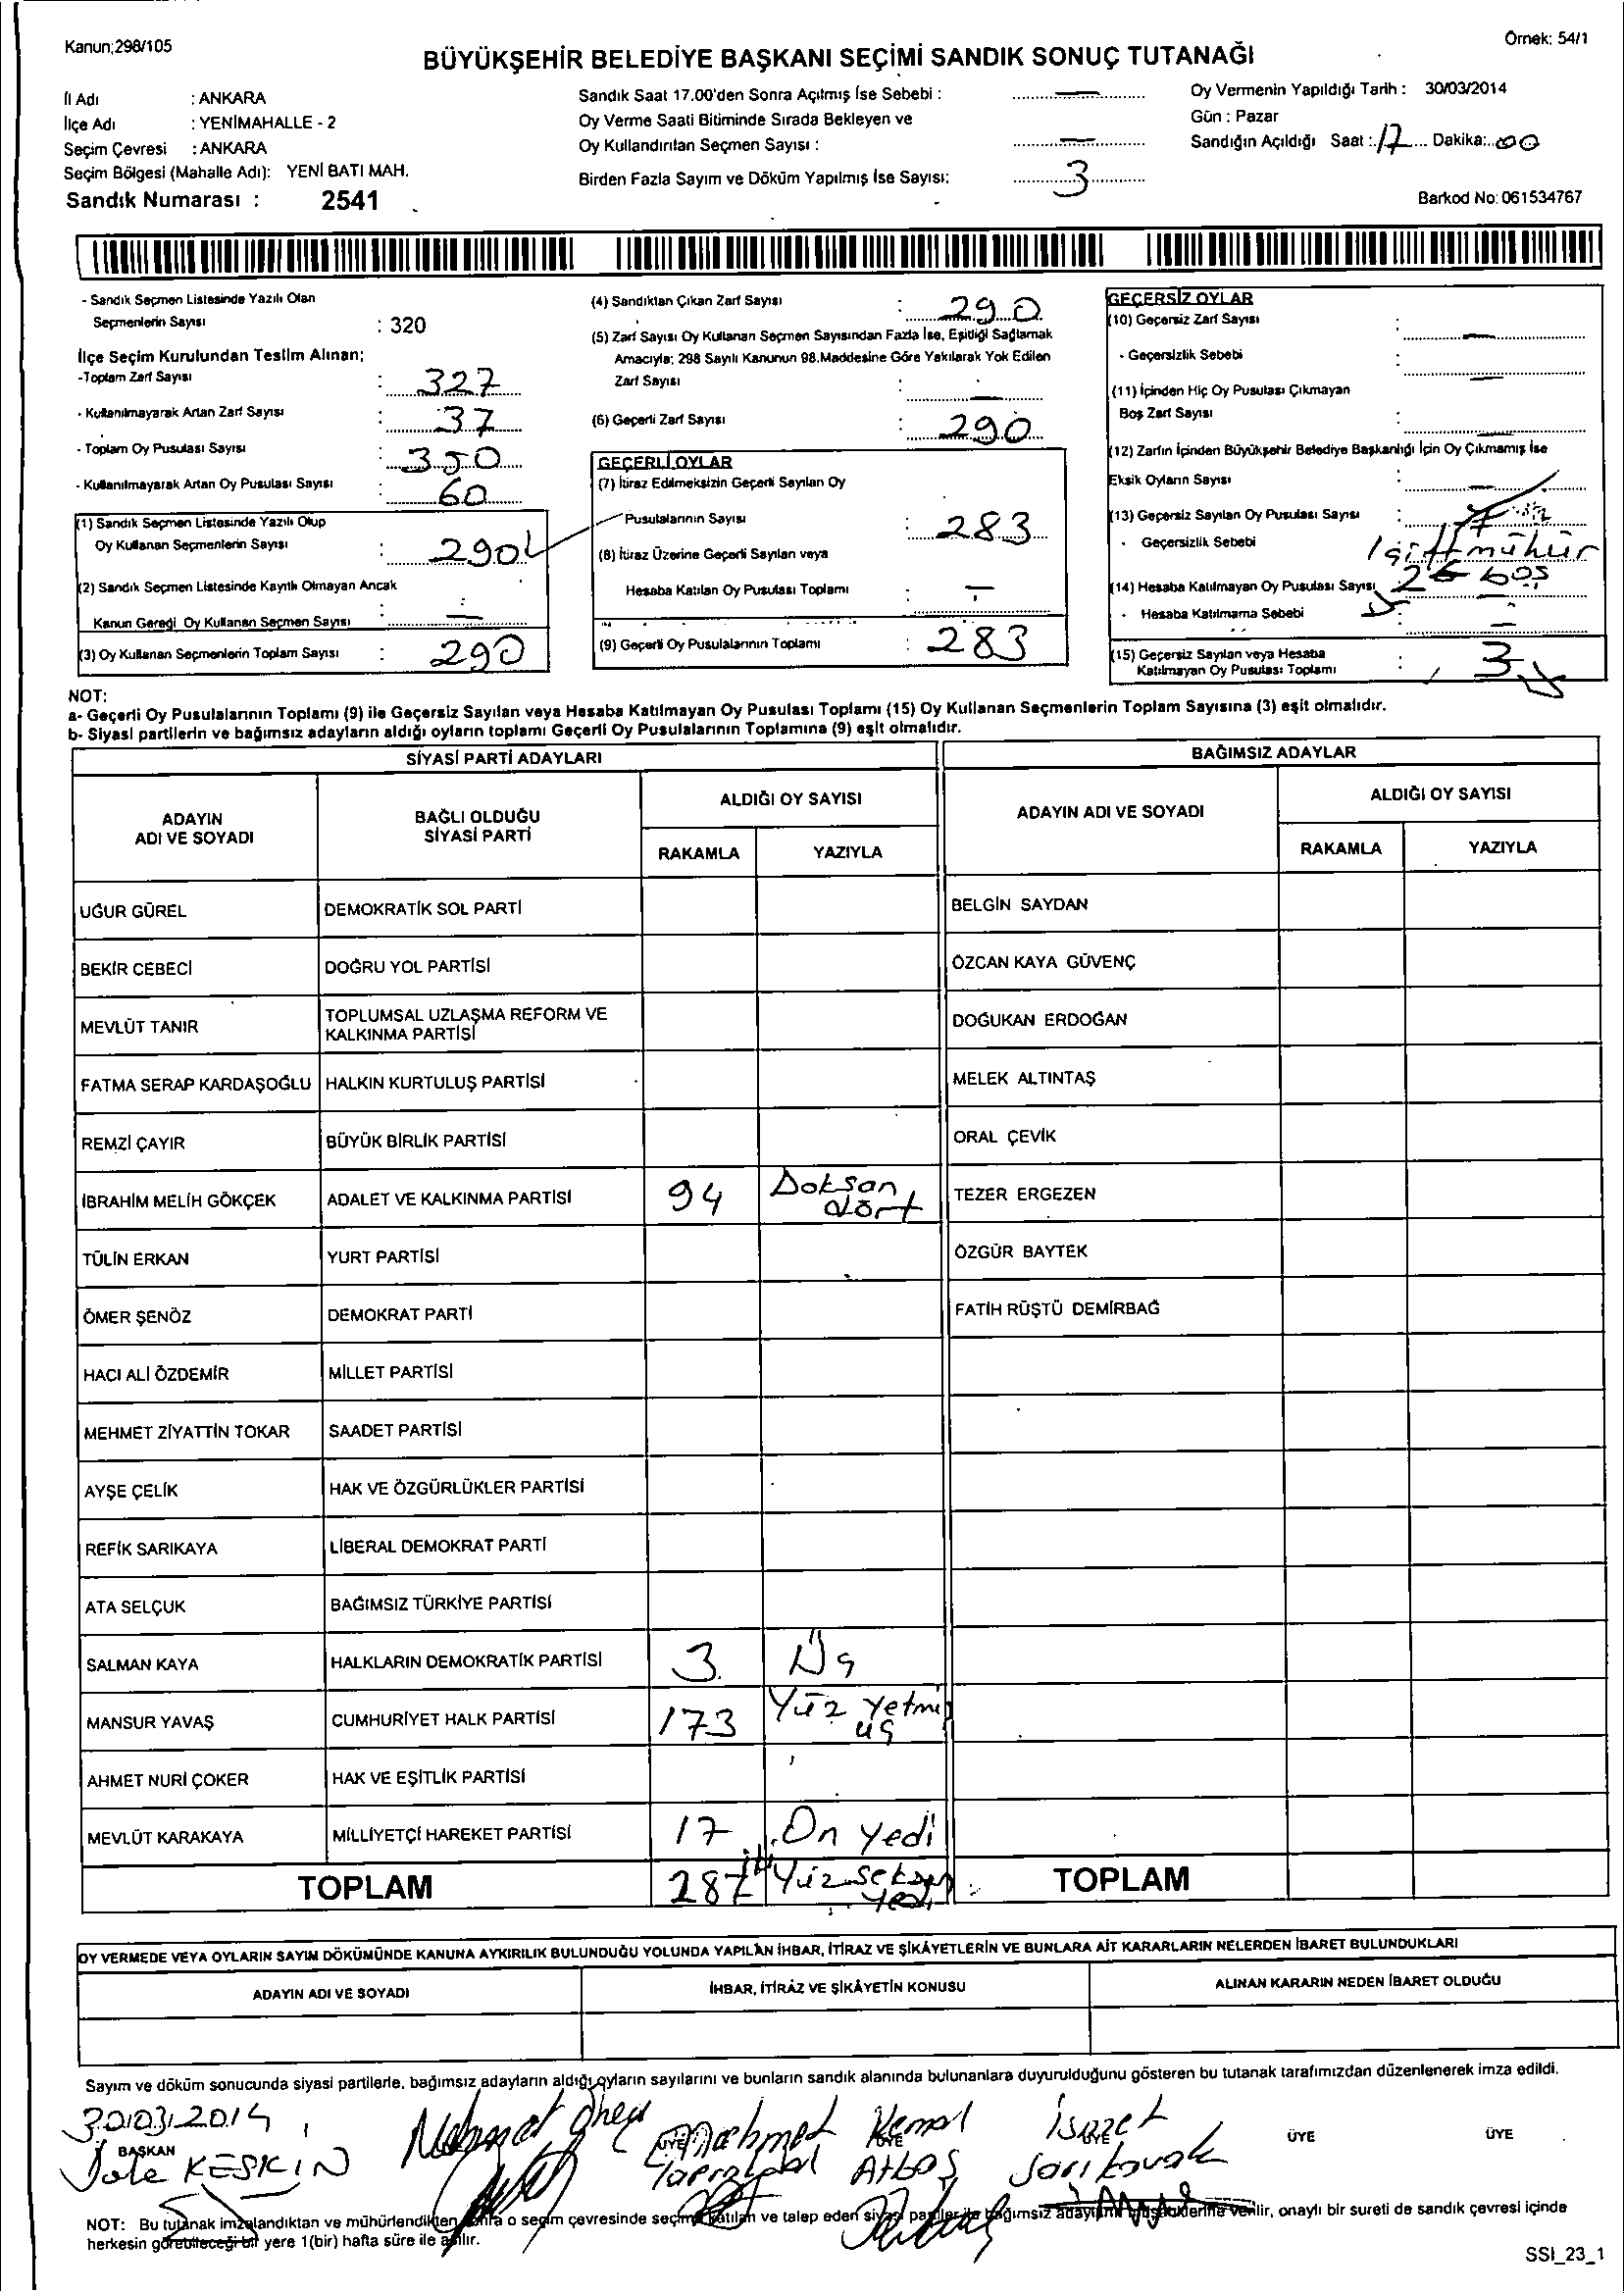 Kanun;298/105
Örnek: 54/1
BÜYÜKŞEHİR BELEDİYE BAŞKANI SEÇİMİ SANDIK SONUÇ TUTANAĞI
İl Adı : ANKARA
İlçe Adı : YENİMAHALLE - 2
Seçim Çevresi : ANKARA
Seçim Bölgesi (Mahalle Adı): YENİ BATI MAH.
Sandık Numarası : 2541
Sandık Saat 17.00'den Sonra Açılmış İse Sebebi : —
Oy Verme Saati Bitiminde Sırada Bekleyen ve
Oy Kullandırılan Seçmen Sayısı : —
Birden Fazla Sayım ve Döküm Yapılmış İse Sayısı: 3
Oy Vermenin Yapıldığı Tarih : 30/03/2014
Gün : Pazar
Sandığın Açıldığı Saat : 17 Dakika: 00
Barkod No: 061534767
- Sandık Seçmen Listesinde Yazılı Olan
Seçmenlerin Sayısı : 320
İlçe Seçim Kurulundan Teslim Alınan:
-Toplam Zarf Sayısı : 327
- Kullanılmayarak Artan Zarf Sayısı : 37
- Toplam Oy Pusulası Sayısı : 350
- Kullanılmayarak Artan Oy Pusulası Sayısı : 60
(1) Sandık Seçmen Listesinde Yazılı Olup
Oy Kullanan Seçmenlerin Sayısı : 290
(2) Sandık Seçmen Listesinde Kayıtlı Olmayan Ancak
Kanun Gereği Oy Kullanan Seçmen Sayısı : —
(3) Oy Kullanan Seçmenlerin Toplam Sayısı : 290
(4) Sandıktan Çıkan Zarf Sayısı : 290
(5) Zarf Sayısı Oy Kullanan Seçmen Sayısından Fazla İse, Eşitliği Sağlamak
Amacıyla; 298 Sayılı Kanunun 98.Maddesine Göre Yakılarak Yok Edilen
Zarf Sayısı : —
(6) Geçerli Zarf Sayısı : 290
GEÇERLİ OYLAR
(7) İtiraz Edilmeksizin Geçerli Sayılan Oy
Pusulalarının Sayısı : 283
(8) İtiraz Üzerine Geçerli Sayılan veya
Hesaba Katılan Oy Pusulası Toplamı : —
(9) Geçerli Oy Pusulalarının Toplamı : 283
GEÇERSİZ OYLAR
(10) Geçersiz Zarf Sayısı : —
- Geçersizlik Sebebi :
(11) İçinden Hiç Oy Pusulası Çıkmayan —
Boş Zarf Sayısı : —
(12) Zarfın İçinden Büyükşehir Belediye Başkanlığı İçin Oy Çıkmamış İse
Eksik Oyların Sayısı : —
(13) Geçersiz Sayılan Oy Pusulası Sayısı : 7
- Geçersizlik Sebebi 1 çift mühür
(14) Hesaba Katılmayan Oy Pusulası Sayısı 2 boş
- Hesaba Katılmama Sebebi : —
(15) Geçersiz Sayılan veya Hesaba
Katılmayan Oy Pusulası Toplamı : 3
NOT:
a- Geçerli Oy Pusulalarının Toplamı (9) ile Geçersiz Sayılan veya Hesaba Katılmayan Oy Pusulası Toplamı (15) Oy Kullanan Seçmenlerin Toplam Sayısına (3) eşit olmalıdır.
b- Siyasi partilerin ve bağımsız adayların aldığı oyların toplamı Geçerli Oy Pusulalarının Toplamına (9) eşit olmalıdır.
SİYASİ PARTİ ADAYLARI
ADAYIN
ADI VE SOYADI
BAĞLI OLDUĞU
SİYASİ PARTİ
ALDIĞI OY SAYISI
RAKAMLA YAZIYLA
UĞUR GÜREL DEMOKRATİK SOL PARTİ
BEKİR CEBECİ DOĞRU YOL PARTİSİ
MEVLÜT TANIR TOPLUMSAL UZLAŞMA REFORM VE
KALKINMA PARTİSİ
FATMA SERAP KARDAŞOĞLU HALKIN KURTULUŞ PARTİSİ
REMZİ ÇAYIR BÜYÜK BİRLİK PARTİSİ
İBRAHİM MELİH GÖKÇEK ADALET VE KALKINMA PARTİSİ 94 Doksan
dört
TÜLİN ERKAN YURT PARTİSİ
ÖMER ŞENÖZ DEMOKRAT PARTİ
HACI ALİ ÖZDEMİR MİLLET PARTİSİ
MEHMET ZİYATTİN TOKAR SAADET PARTİSİ
AYŞE ÇELİK HAK VE ÖZGÜRLÜKLER PARTİSİ
REFİK SARIKAYA LİBERAL DEMOKRAT PARTİ
ATA SELÇUK BAĞIMSIZ TÜRKİYE PARTİSİ
SALMAN KAYA HALKLARIN DEMOKRATİK PARTİSİ 3 Üç
MANSUR YAVAŞ CUMHURİYET HALK PARTİSİ 173 Yüz Yetmiş
üç
AHMET NURİ ÇOKER HAK VE EŞİTLİK PARTİSİ
MEVLÜT KARAKAYA MİLLİYETÇİ HAREKET PARTİSİ 17 On Yedi
TOPLAM 287 iki Yüz Seksen
Yedi
BAĞIMSIZ ADAYLAR
ADAYIN ADI VE SOYADI
ALDIĞI OY SAYISI
RAKAMLA YAZIYLA
BELGİN SAYDAN
ÖZCAN KAYA GÜVENÇ
DOĞUKAN ERDOĞAN
MELEK ALTINTAŞ
ORAL ÇEVİK
TEZER ERGEZEN
ÖZGÜR BAYTEK
FATİH RÜŞTÜ DEMİRBAĞ
TOPLAM
OY VERMEDE VEYA OYLARIN SAYIM DÖKÜMÜNDE KANUNA AYKIRILIK BULUNDUĞU YOLUNDA YAPILAN İHBAR, İTİRAZ VE ŞİKÂYETLERİN VE BUNLARA AİT KARARLARIN NELERDEN İBARET BULUNDUKLARI
ADAYIN ADI VE SOYADI İHBAR, İTİRAZ VE ŞİKÂYETİN KONUSU ALINAN KARARIN NEDEN İBARET OLDUĞU
Sayım ve döküm sonucunda siyasi partilerle, bağımsız adayların aldığı oyların sayılarını ve bunların sandık alanında bulunanlara duyurulduğunu gösteren bu tutanak tarafımızdan düzenlenerek imza edildi.
30/03/2014
BAŞKAN ÜYE ÜYE ÜYE ÜYE ÜYE
Jale KESKİN
Mehmet
Mehmet
Kemal
Atbaş
İsmet
Sarıkavak
NOT: Bu tutanak imzalandıktan ve mühürlendikten sonra o seçim çevresinde seçime katılan ve talep eden siyasi partiler ile bağımsız adayların müşahitlerine verilir, onaylı bir sureti de sandık çevresi içinde
herkesin görebileceği bir yere 1(bir) hafta süre ile asılır.
SSI_23_1